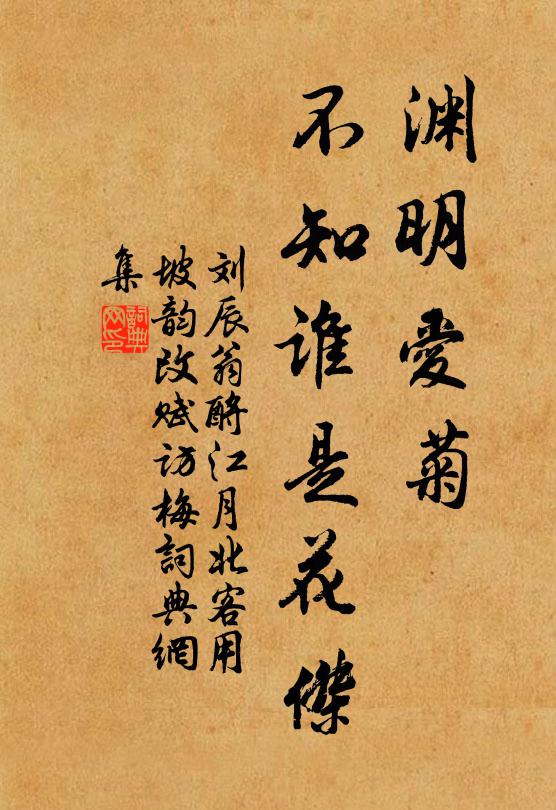 渊明愛菊
不知誰是花傑
刘辰翁酹江月北客用
坡韵改赋访梅詞典網
集
詞典
网印